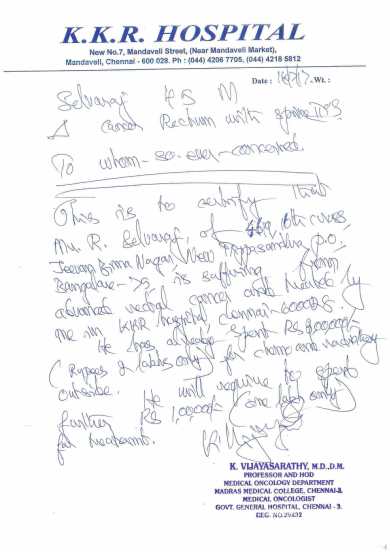 K.K.R. HOSPITAL
New No.7, Mandaveli Street, (Near Mandaveli Market),
Mandaveli, Chennai - 600 028. Ph : (044) 4206 7705, (044) 4218 5812
Date : Wt. :
Selvaraj 45 M
Rectum with
To whom-so-ever-concerned.
This is to certify that
Mr. R. Selvaraj, of
Jeevan Bima Nagar New Tippasandra P.O.
Bangalore-75 is suffering from
advanced rectal cancer and treated by
me in KKR hospital Chennai-600028
He has already spent Rs. 200000/-
(Rupees 2 lakhs only) for chemo and radiotherapy
outside. He will require to spent
further Rs 1,00000/- (one lakh only)
for treatment.
K. VIJAYASARATHY, M.D.,D.M.
PROFESSOR AND HOD
MEDICAL ONCOLOGY DEPARTMENT
MADRAS MEDICAL COLLEGE, CHENNAI-3.
MEDICAL ONCOLOGIST
GOVT. GENERAL HOSPITAL, CHENNAI - 3.
REG. NO.29432